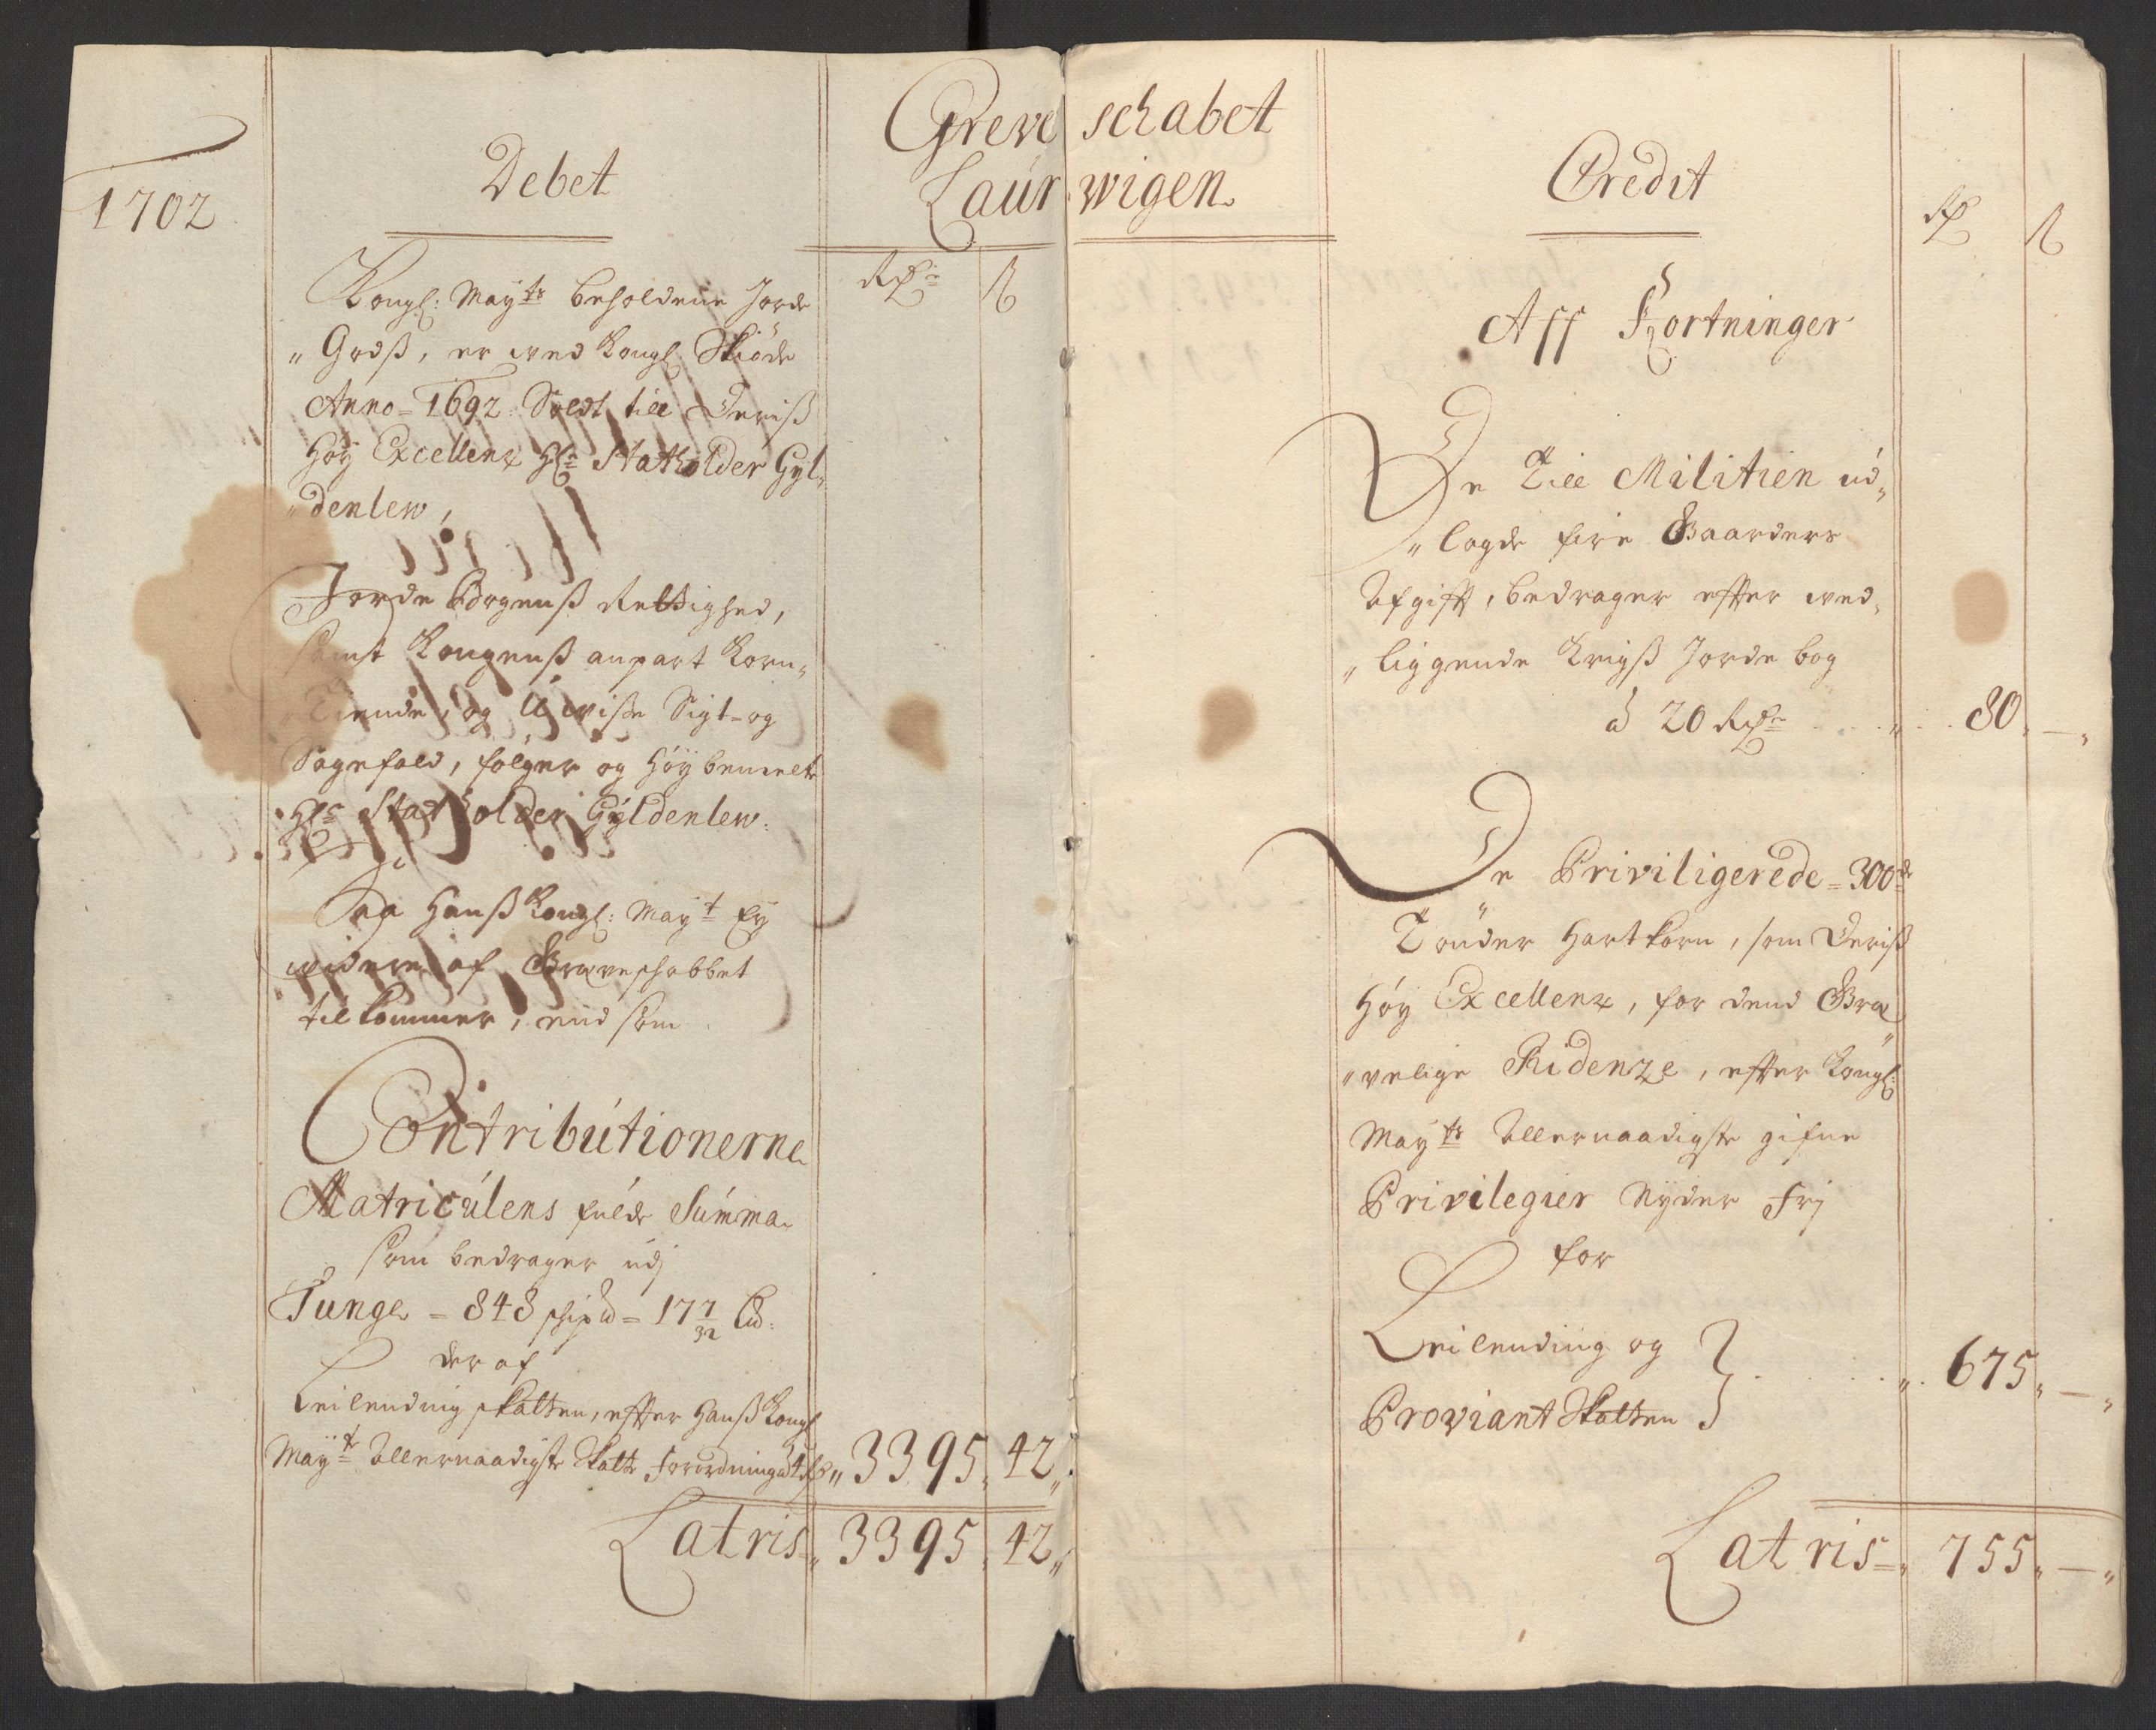 1702
Debet
Greve schabet
Laur wigen.
Rdr ß
Kongl: Mayts beholdene Jorde
"Godß, er wed Kongl Skiöde
Anno=1692: Soldt till Deriß
Höy Excellenz Hr Statholder Gyl„
"denlew,
Jorde Bogenß Rettighed,
samt Kongenß anpart Korn„
Tiende, og Uwisse Sigt- og
Sagefald, fölger og Höybemelte
Hr Statholder Gÿldenlew:
Saa Hanß Kongl: Mayt Ey
widere af Greveschabbet
tilkommer, end som
Contributionerne
Matriculens fulde Summa
som bedrager udj
Tunge = 848 schipd = 17 7/32 Lid:
der af
Leilending skatten, effter Hanß Kongl
Mayts Allernaadigste Skatte Forordning a 4 Rdr „ 3395„ 42„
Latris„ 3395„ 42„
Credit
Rdr ß
Aff Kortninger
De Till Militien ud„
"lagde fire Gaarders
Afgifft, bedrager effter wed„
"liggende Krigß Jorde bog
à 20 Rdr . . . . „ . . 80„ — „
De Priviligerede=300de
Tönder Hartkorn, som Deriß
Höy Excellenz, for dend Gre
"velige Ridenze, effter Kongl:
Mayts Allernaadigste gifne
Privilegier Nyder Frj
for
Leilending og
Proviant Skatten } . . . . „ . 675„ — „
Latris=„ 755„ — „